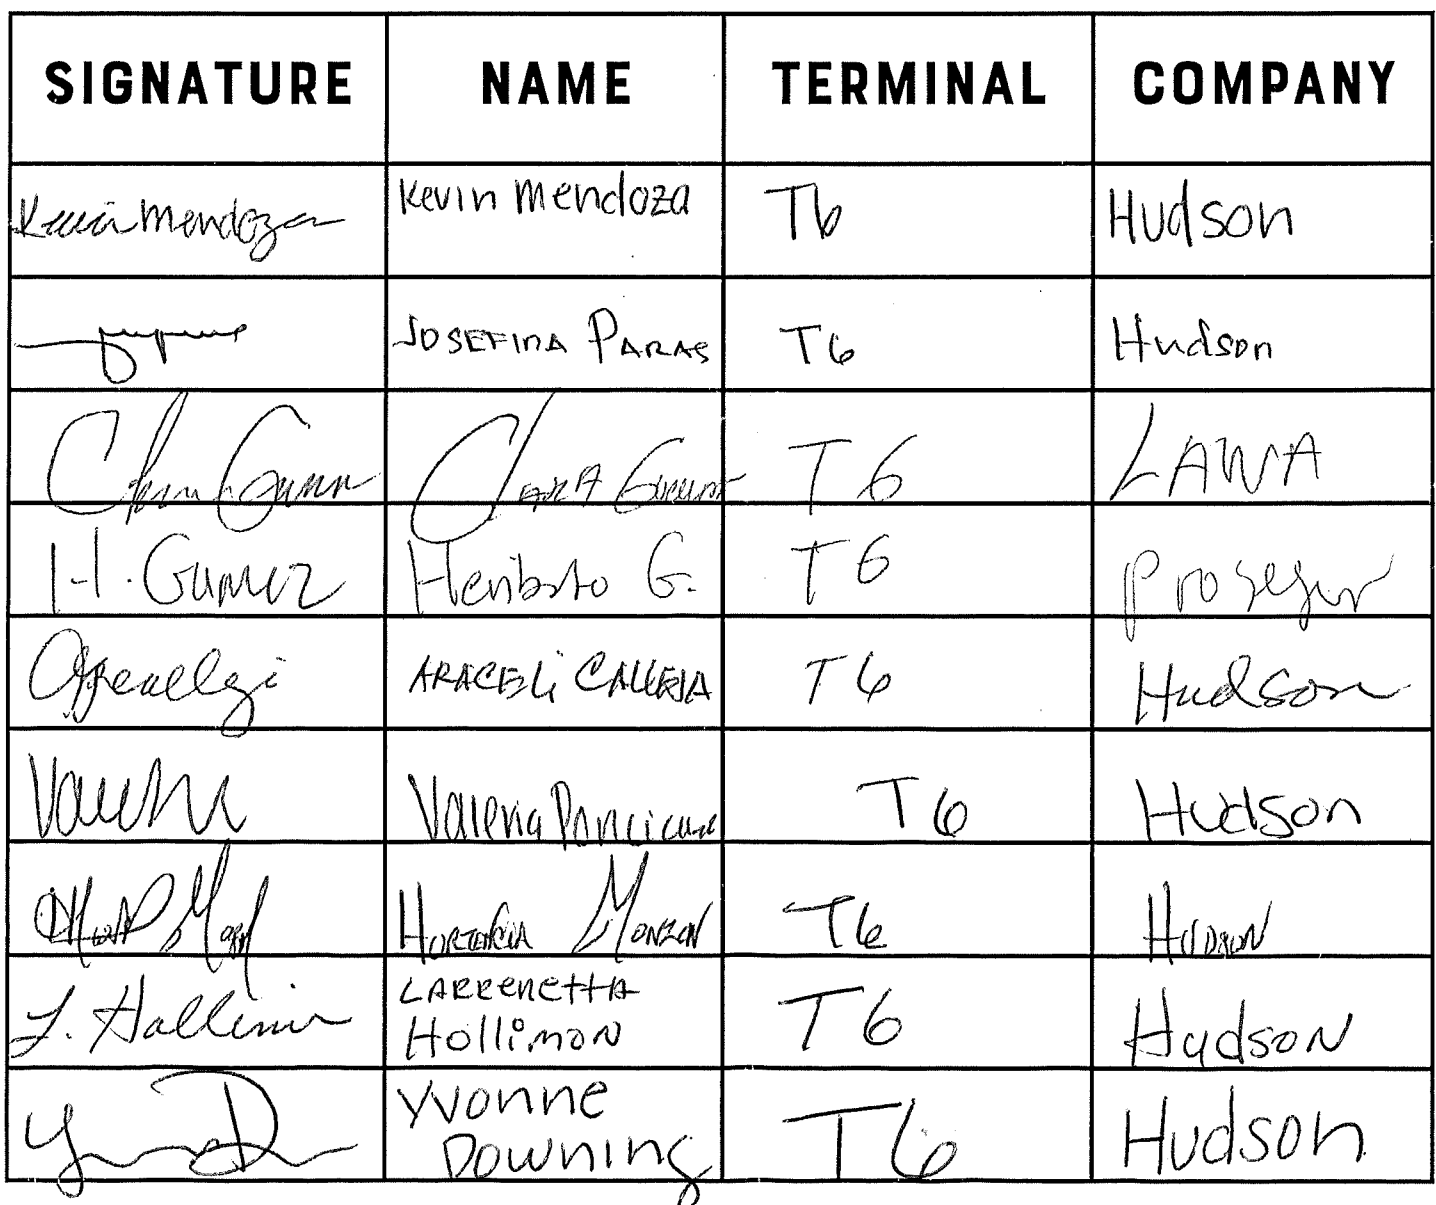 SIGNATURE NAME TERMINAL COMPANY
Kevin Mendoza Kevin Mendoza T6 Hudson
JOSEFINA PARAS T6 Hudson
T 6 LAWA
H. Gomez Heriberto G. T 6 Prosegur
ARACELI CALLEJA T6 Hudson
Valeria T6 Hudson
HORTENCIA MONZON T6 HUDSON
L. Hollimon LARRENETTA Hollimon T6 Hudson
Yvonne Downing T6 Hudson